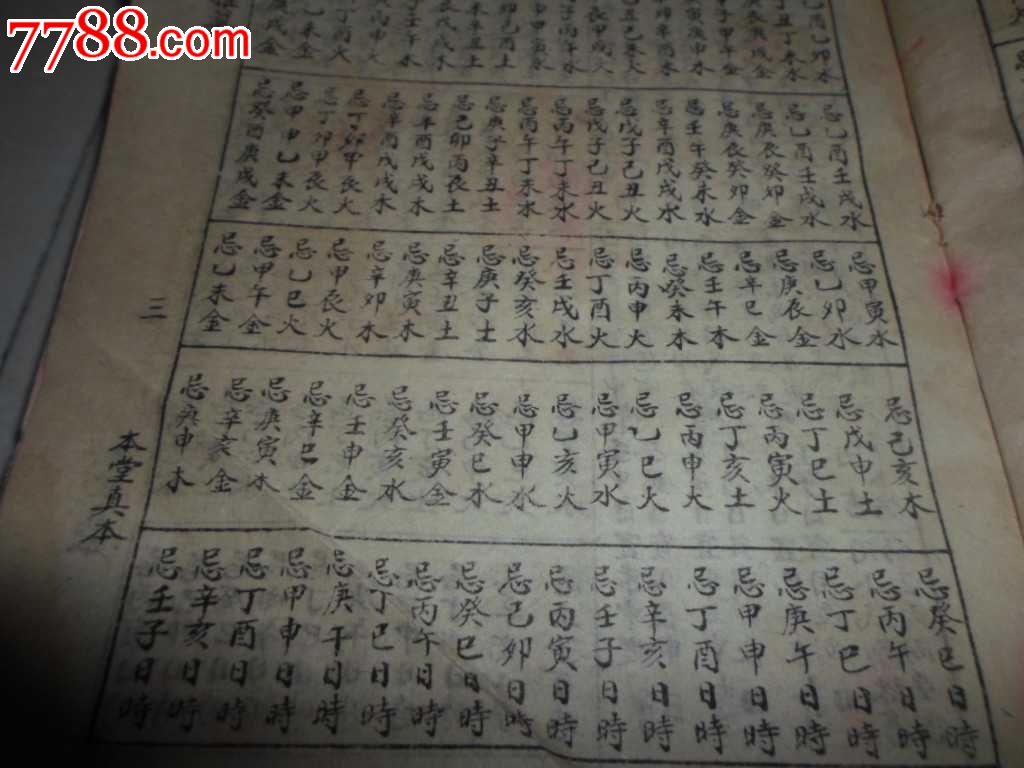 7788.com
忌乙酉壬戌水
忌乙酉壬戌水
忌庚辰癸卯金
忌庚辰癸卯金
忌壬午癸未水
忌辛酉戊戌水
忌戊子己丑火
忌戊子己丑火
忌丙午丁未水
忌丙午丁未水
忌庚子辛丑土
忌己卯丙辰土
忌辛酉戊戌木
忌辛酉戊戌木
忌丁卯甲辰火
忌丁卯甲辰火
忌甲申乙未金
忌癸酉庚戌金
忌甲寅水
忌乙卯水
忌庚辰金
忌辛巳金
忌壬午木
忌癸未木
忌丙申火
忌丁酉火
忌壬戌水
忌癸亥水
忌庚子土
忌辛丑土
忌庚寅木
忌辛卯木
忌甲辰火
忌乙巳火
忌甲午金
忌乙未金
忌己亥木
忌戊申土
忌丁巳土
忌丙寅火
忌丁亥土
忌丙申火
忌乙巳火
忌甲寅水
忌乙亥火
忌甲申水
忌癸巳水
忌壬寅金
忌癸亥水
忌壬申金
忌辛巳金
忌庚寅木
忌辛亥金
忌庚申木
忌癸巳日時
忌丙午日時
忌丁巳日時
忌庚午日時
忌甲申日時
忌丁酉日時
忌辛亥日時
忌壬子日時
忌丙寅日時
忌己卯日時
忌癸巳日時
忌丙午日時
忌丁巳日時
忌庚午日時
忌甲申日時
忌丁酉日時
忌辛亥日時
忌壬子日時
三
本堂真本